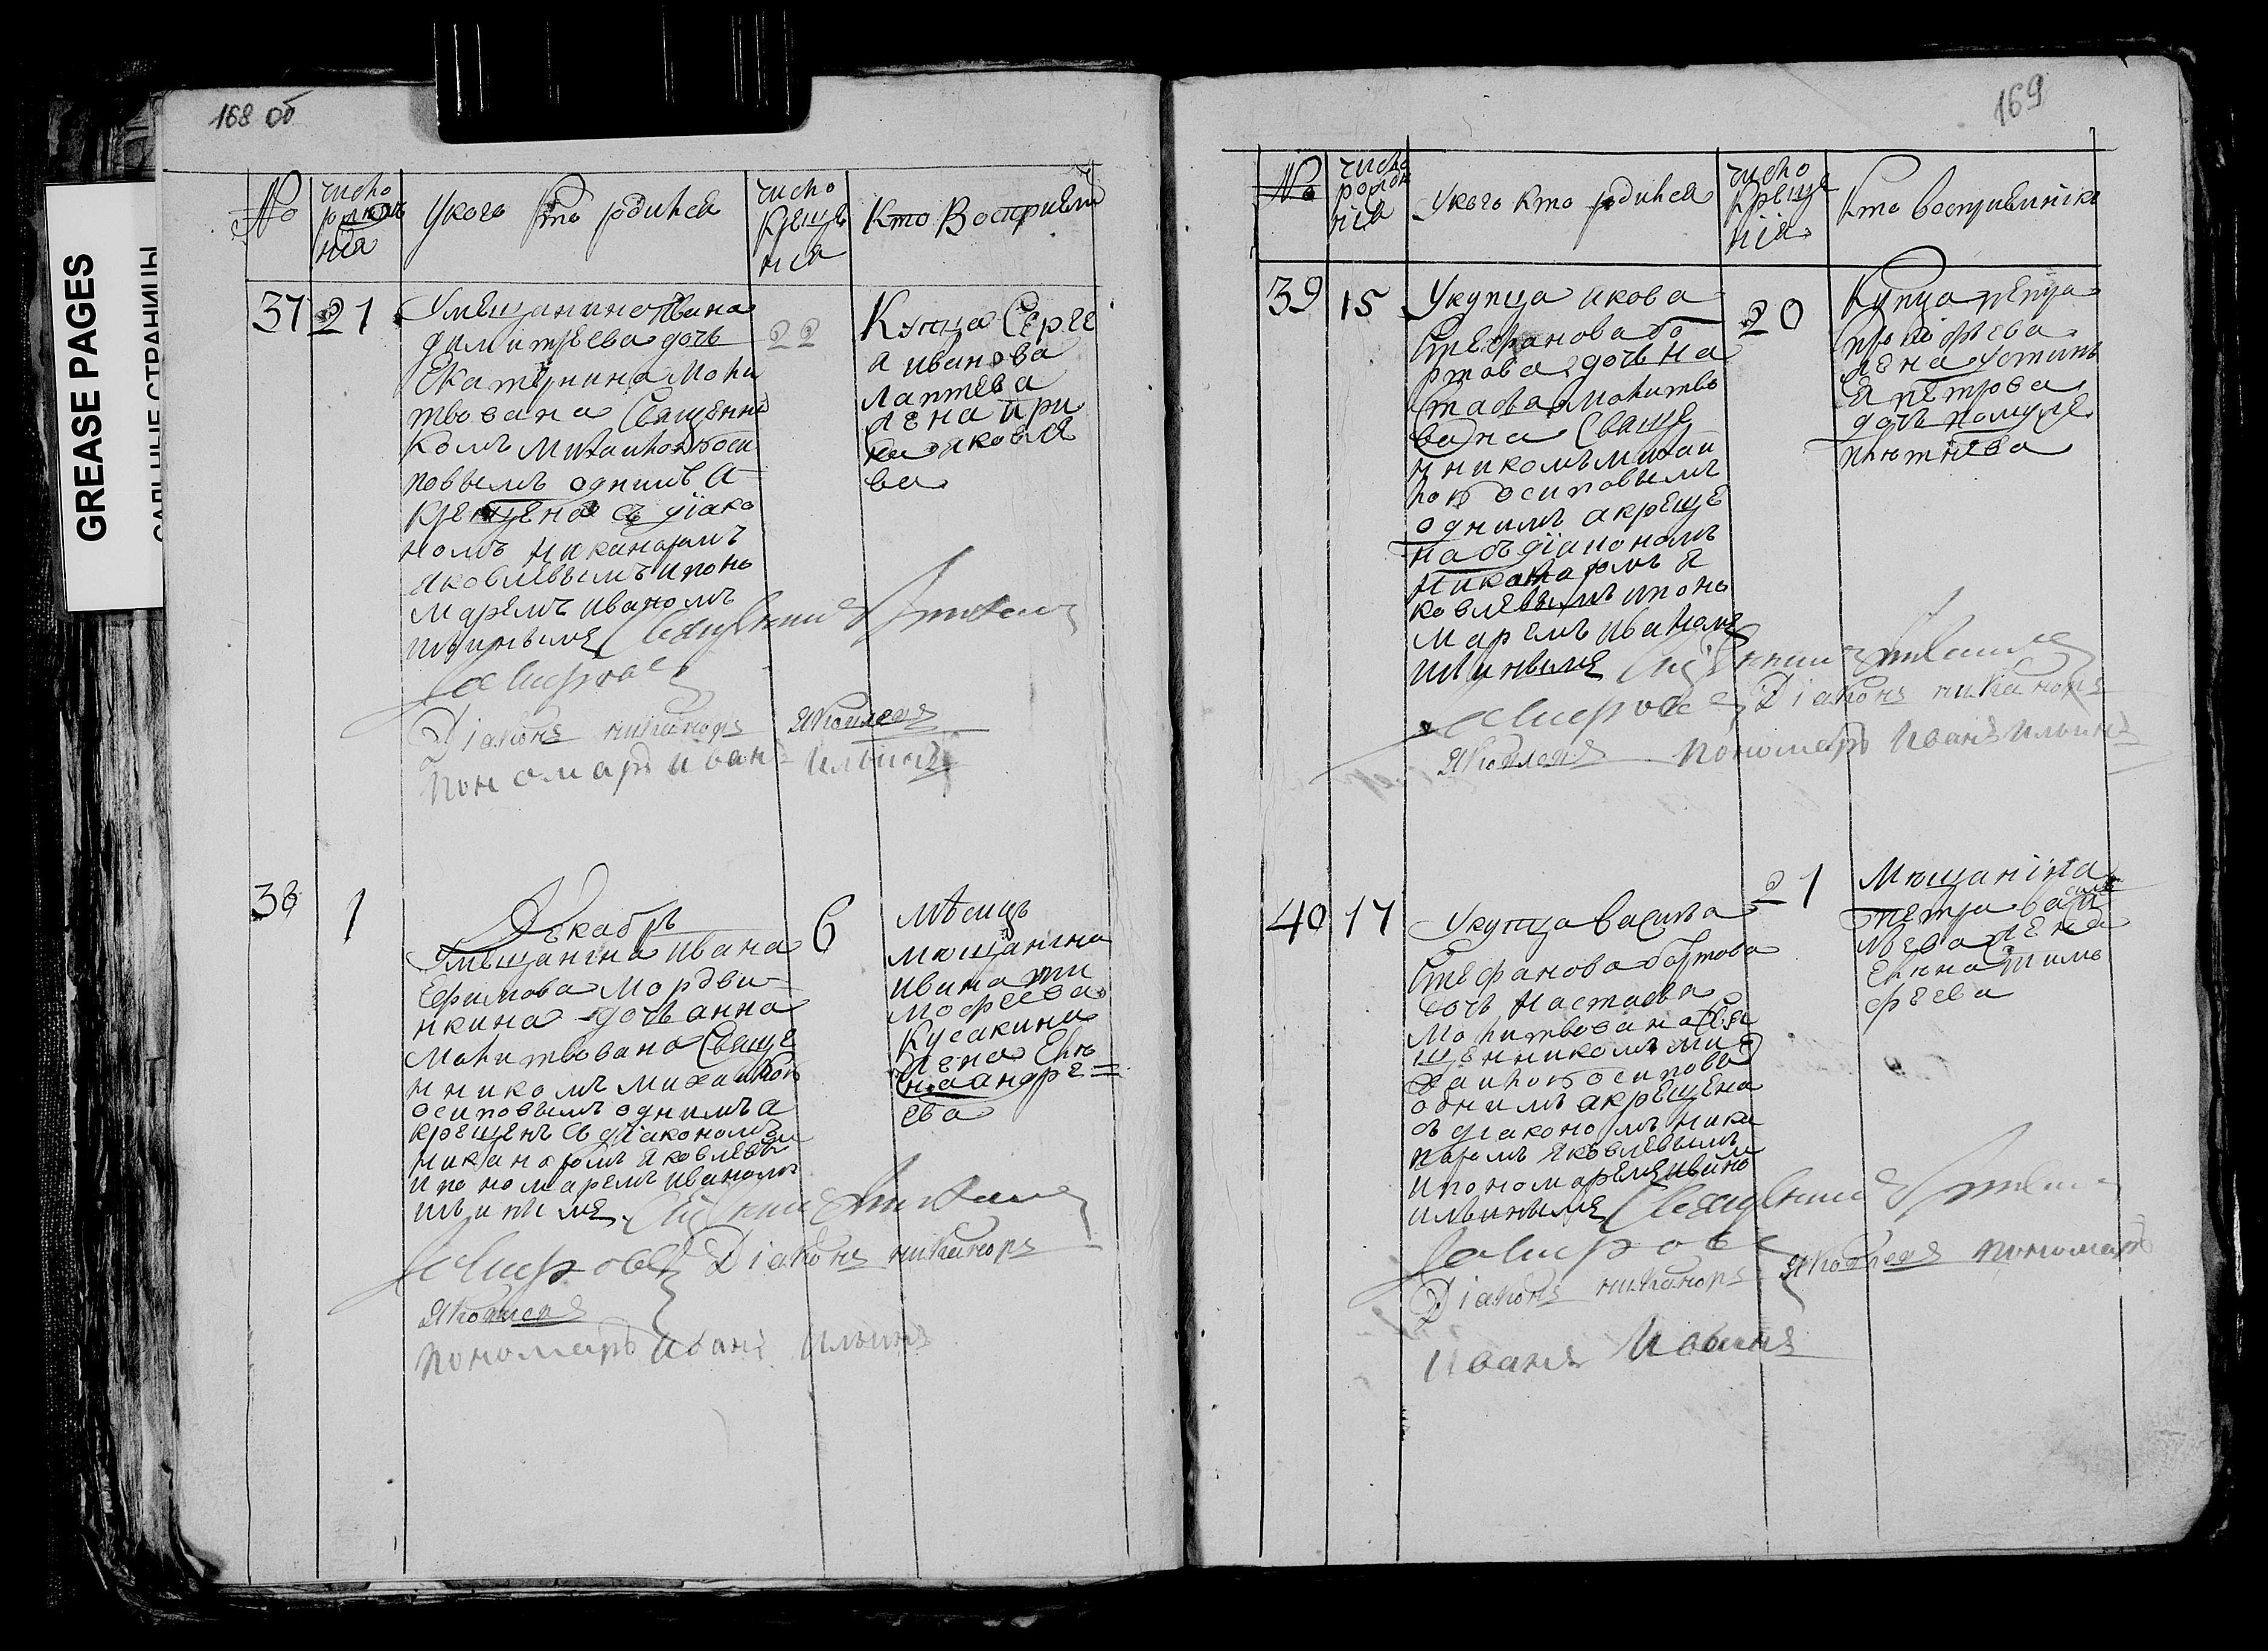 GREASE PAGES
САЛЬНЫЕ СТРАНИЦЫ
168 об
№
число рожде нія
У кого кто родился
число креще нія
Кто Восприем
37
21
У мещанина Ивана
димитрева дочь
Екатерина Моли
твована Священни
комъ Михаиломъ Оси
повымъ однимъ а
крещена съ діако
номъ Никаноромъ
яковлевымъ и поно
маремъ Иваномъ
ильинымъ Священникъ Михаилъ
Діаконъ никаноръ яковлевъ
пономарь иванъ ильинъ
22
Купца Серге
а иванова
Лаптева
жена Ири
на яковле
ва
38
1
Декабрь
У мещанина Ивана
Ефимова Мордви
нкина дочь анна
Молитвована Свяще
нникомъ михаиломъ
осиповымъ однимъ а
крещенъ съ діакономъ
никаноромъ яковлевы
и пономаремъ иваномъ
ильинымъ Священникъ Михаилъ
Діаконъ никаноръ
яковлевъ
пономарь иванъ ильинъ
6
мѣсицъ
мещанина
ивана ти
мофеева
Кусакина
жена Еле
на андре=
ева
169
№
число рожде нія
У кого кто родился
число Креще нія
Кто восприемника
39
15
У купца якова
Стефанова бо
ртова дочь на
стасья молитво
вана Свяще
нникомъ михаи
ломъ осиповымъ
однимъ а креще
на съ діакономъ
Никаноромъ я
ковлевымъ и поно
маремъ Иваномъ
ильинымъ Священникъ Михаилъ
Діаконъ никаноръ
яковлевъ пономарь Иванъ ильинъ
20
Купца петра
жена устинь
я петрова
дочь
40
17
У купца Василья
Стефанова бортова
дочь Настасья
Молитвована Свя
щенникомъ ми
хаиломъ осиповы
однимъ а крещена
съ діакономъ ника
норомъ яковлевымъ
и пономаремъ ивано
ильинымъ Священникъ
Діаконъ никаноръ яковлевъ пономарь
Иванъ Ильинъ
21
Мещанина
петра васи
льева жена
Елена тимо
феева